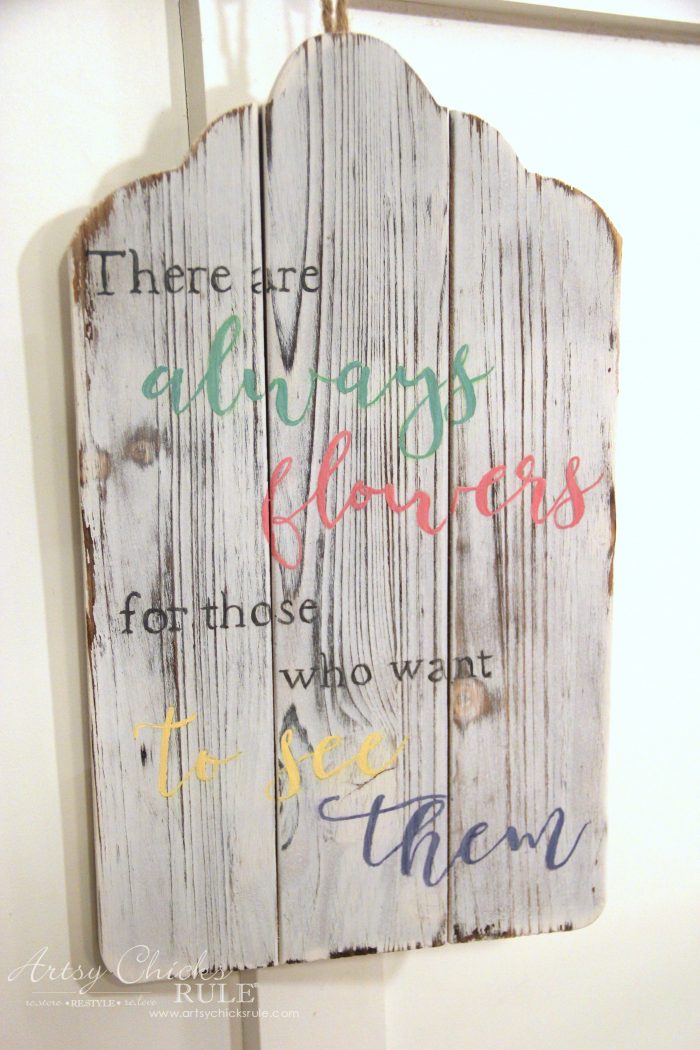 There are
always
flowers
for those
who want
to see
them
Artsy Chicks
RULE®
restore • RESTYLE • relove
www.artsychicksrule.com